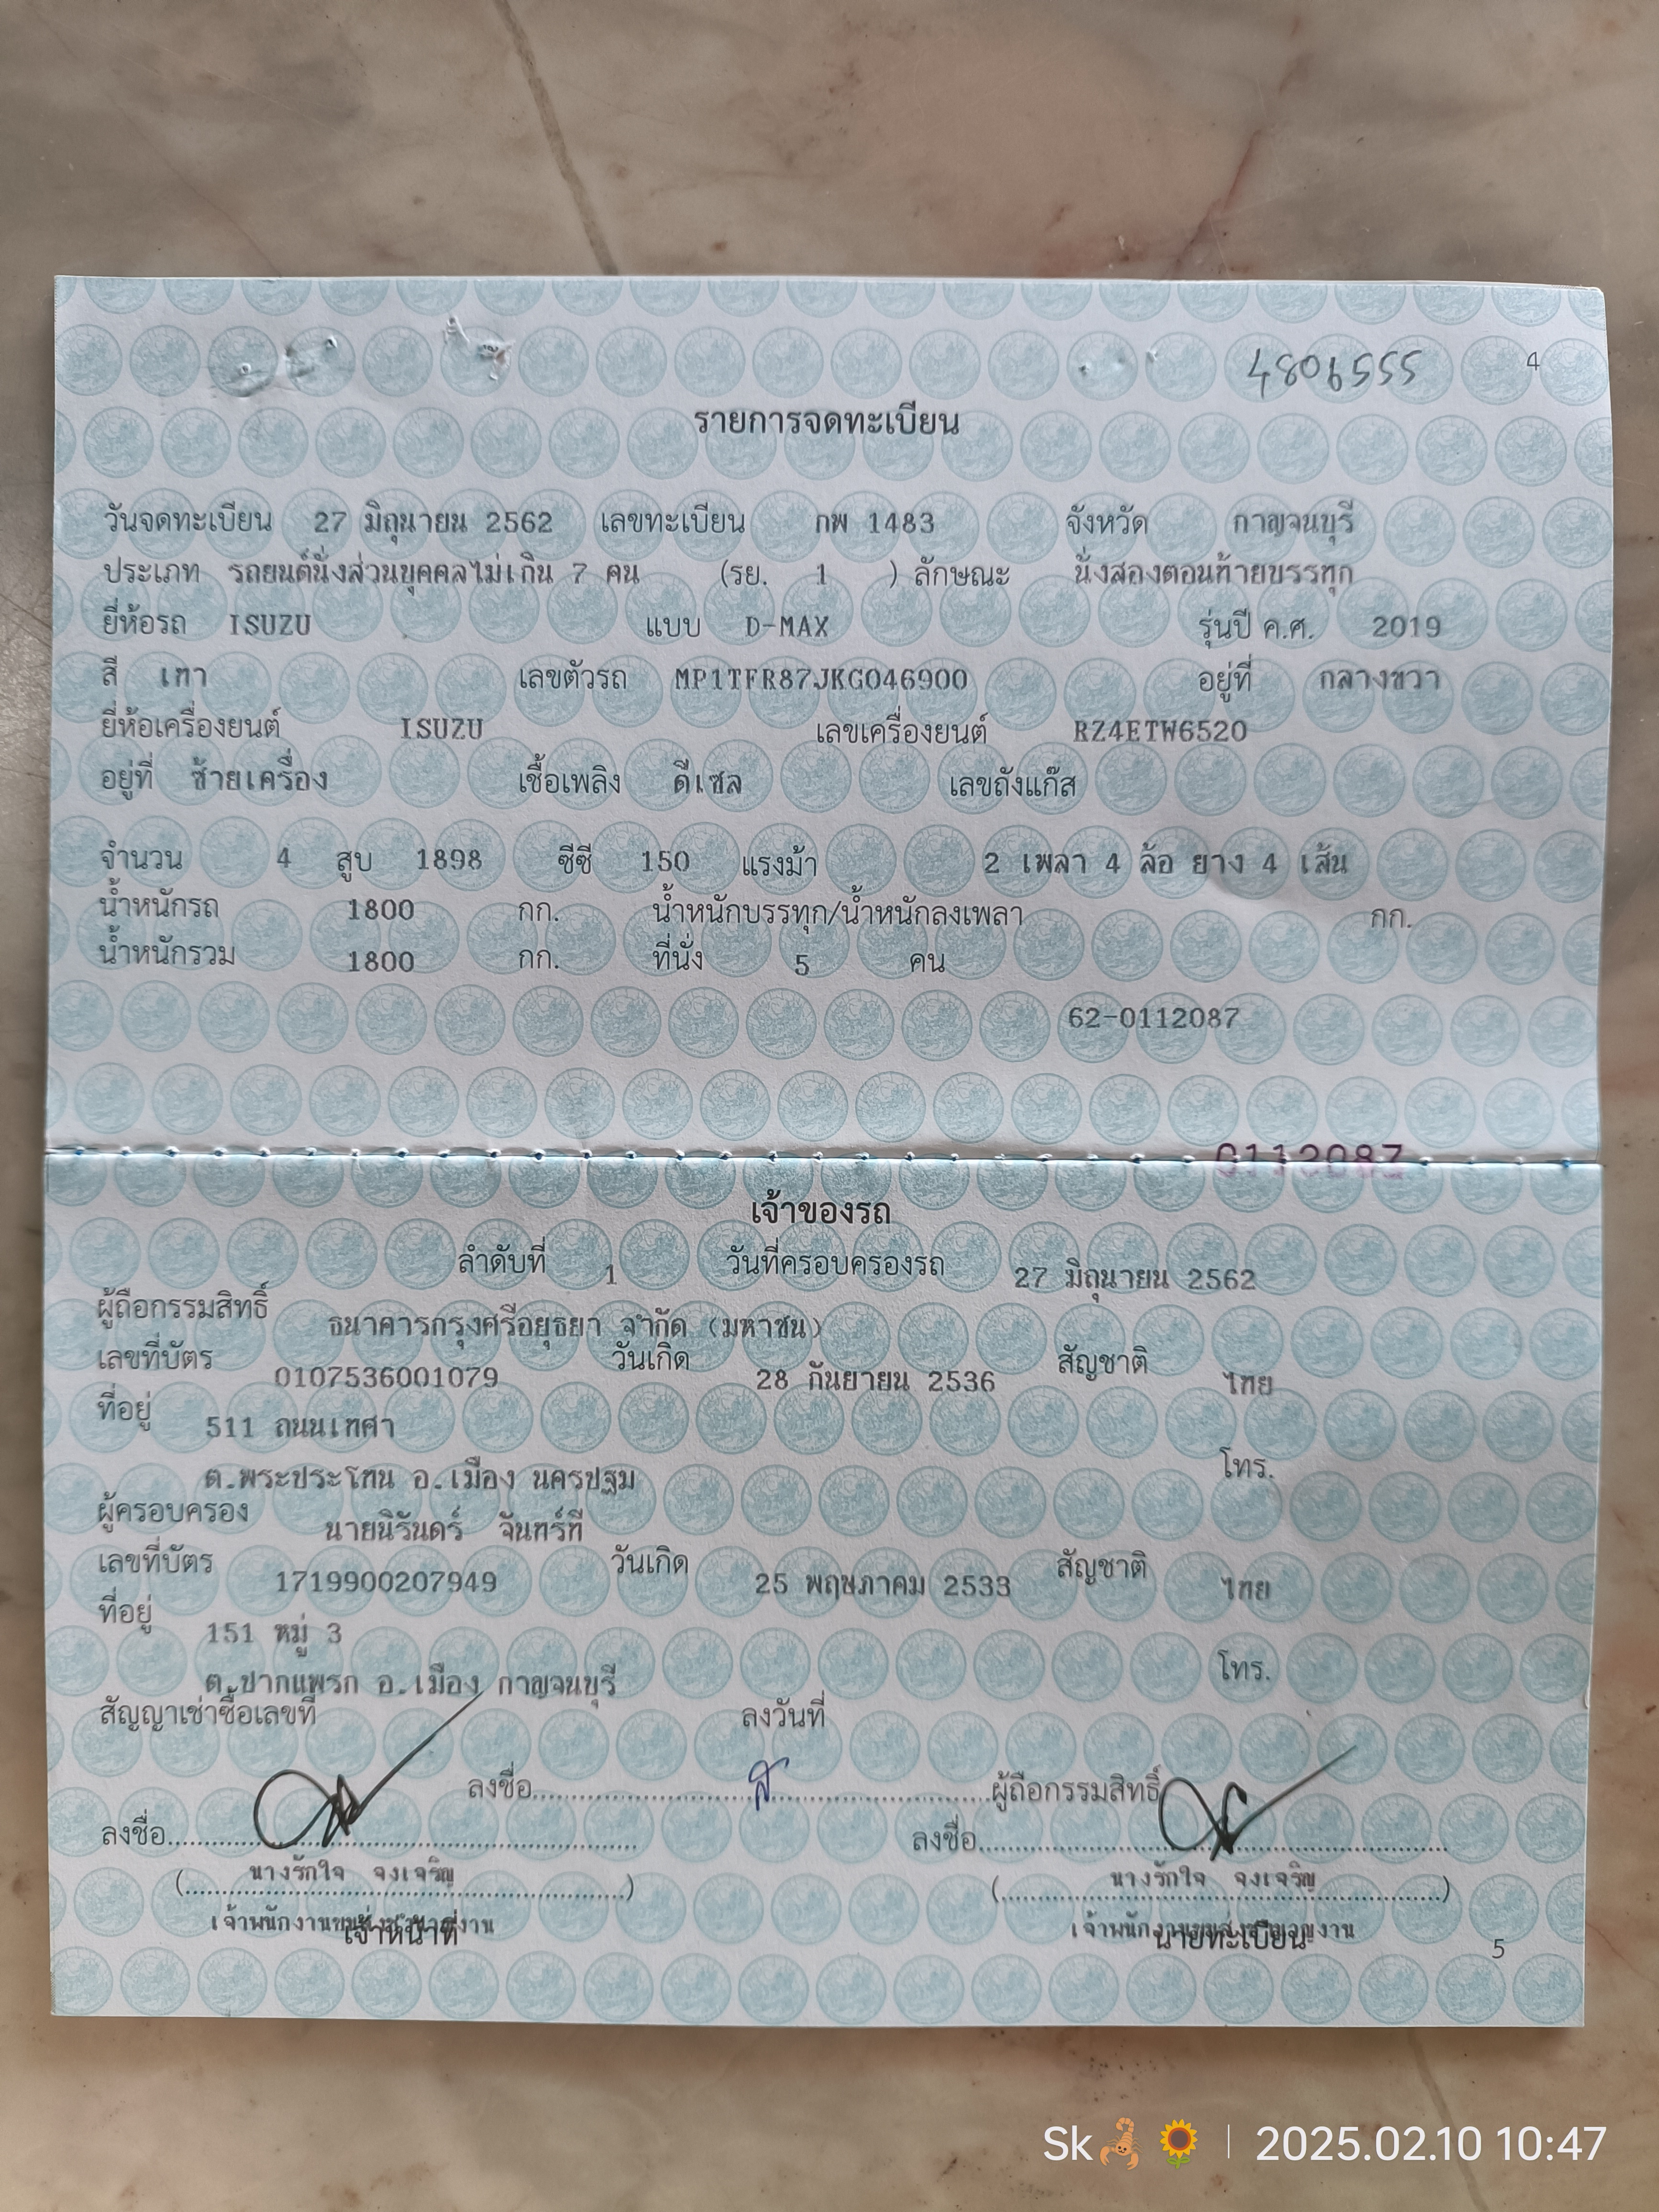 4806555 4
รายการจดทะเบียน
วันจดทะเบียน 27 มิถุนายน 2562 เลขทะเบียน กพ 1483 จังหวัด กาญจนบุรี
ประเภท รถยนต์นั่งส่วนบุคคลไม่เกิน 7 คน (รย. 1 ) ลักษณะ นั่งสองตอนท้ายบรรทุก
ยี่ห้อรถ ISUZU แบบ D-MAX รุ่นปี ค.ศ. 2019
สี เทา เลขตัวรถ MP1TFR87JKG046900 อยู่ที่ กลางขวา
ยี่ห้อเครื่องยนต์ ISUZU เลขเครื่องยนต์ RZ4ETW6520
อยู่ที่ ซ้ายเครื่อง เชื้อเพลิง ดีเซล เลขถังแก๊ส
จำนวน 4 สูบ 1898 ซีซี 150 แรงม้า 2 เพลา 4 ล้อ ยาง 4 เส้น
น้ำหนักรถ 1800 กก. น้ำหนักบรรทุก/น้ำหนักลงเพลา กก.
น้ำหนักรวม 1800 กก. ที่นั่ง 5 คน
62-0112087
0112087
เจ้าของรถ
ลำดับที่ 1 วันที่ครอบครองรถ 27 มิถุนายน 2562
ผู้ถือกรรมสิทธิ์ ธนาคารกรุงศรีอยุธยา จำกัด (มหาชน)
เลขที่บัตร 0107536001079 วันเกิด 28 กันยายน 2536 สัญชาติ ไทย
ที่อยู่ 511 ถนนเทศา
ต.พระประโทน อ.เมือง นครปฐม โทร.
ผู้ครอบครอง นายนิรันดร์ จันทร์ที
เลขที่บัตร 1719900207949 วันเกิด 25 พฤษภาคม 2533 สัญชาติ ไทย
ที่อยู่ 151 หมู่ 3
ต.ปากแพรก อ.เมือง กาญจนบุรี โทร.
สัญญาเช่าซื้อเลขที่ ลงวันที่
ลงชื่อ ผู้ถือกรรมสิทธิ์
ลงชื่อ ลงชื่อ
(นางรักใจ จงเจริญ) (นางรักใจ จงเจริญ)
เจ้าพนักงานขนส่งชำนาญงาน เจ้าพนักงานขนส่งชำนาญงาน
เจ้าหน้าที่ นายทะเบียน
5
Sk🦂🌻 | 2025.02.10 10:47